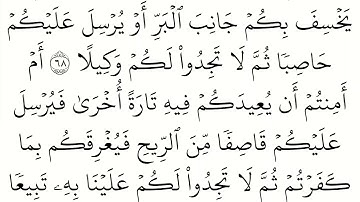 يَخْسِفَ بِكُمْ جَانِبَ ٱلْبَرِّ أَوْ يُرْسِلَ عَلَيْكُمْ
حَاصِبًا ثُمَّ لَا تَجِدُوا۟ لَكُمْ وَكِيلًا ۝٦٨ أَمْ
أَمِنتُمْ أَن يُعِيدَكُمْ فِيهِ تَارَةً أُخْرَىٰ فَيُرْسِلَ
عَلَيْكُمْ قَاصِفًا مِّنَ ٱلرِّيحِ فَيُغْرِقَكُم بِمَا
كَفَرْتُمْ ثُمَّ لَا تَجِدُوا۟ لَكُمْ عَلَيْنَا بِهِۦ تَبِيعًا